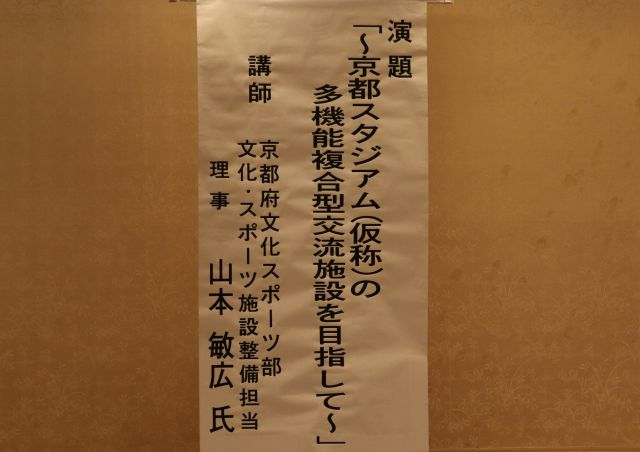 演題
「～京都スタジアム(仮称)の
多機能複合型交流施設を目指して～」
講師
京都府文化スポーツ部
文化・スポーツ施設整備担当
理事 山本 敏広 氏